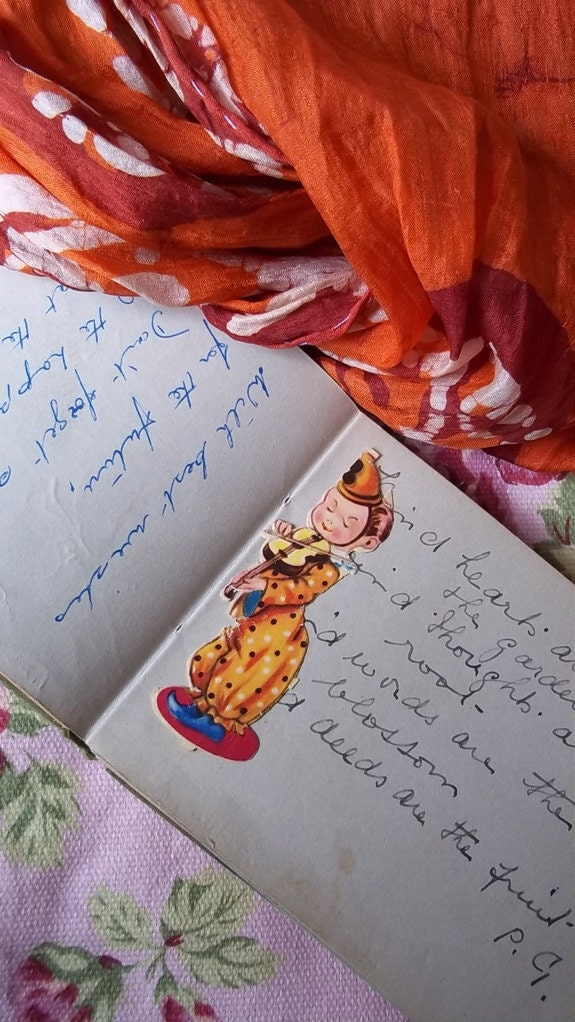 With best wishes
for the future.
Don't forget
the happ
the
Kind hearts
the garden
thoughts
root.
words are the
blossom
deeds are the fruit.
P. G.